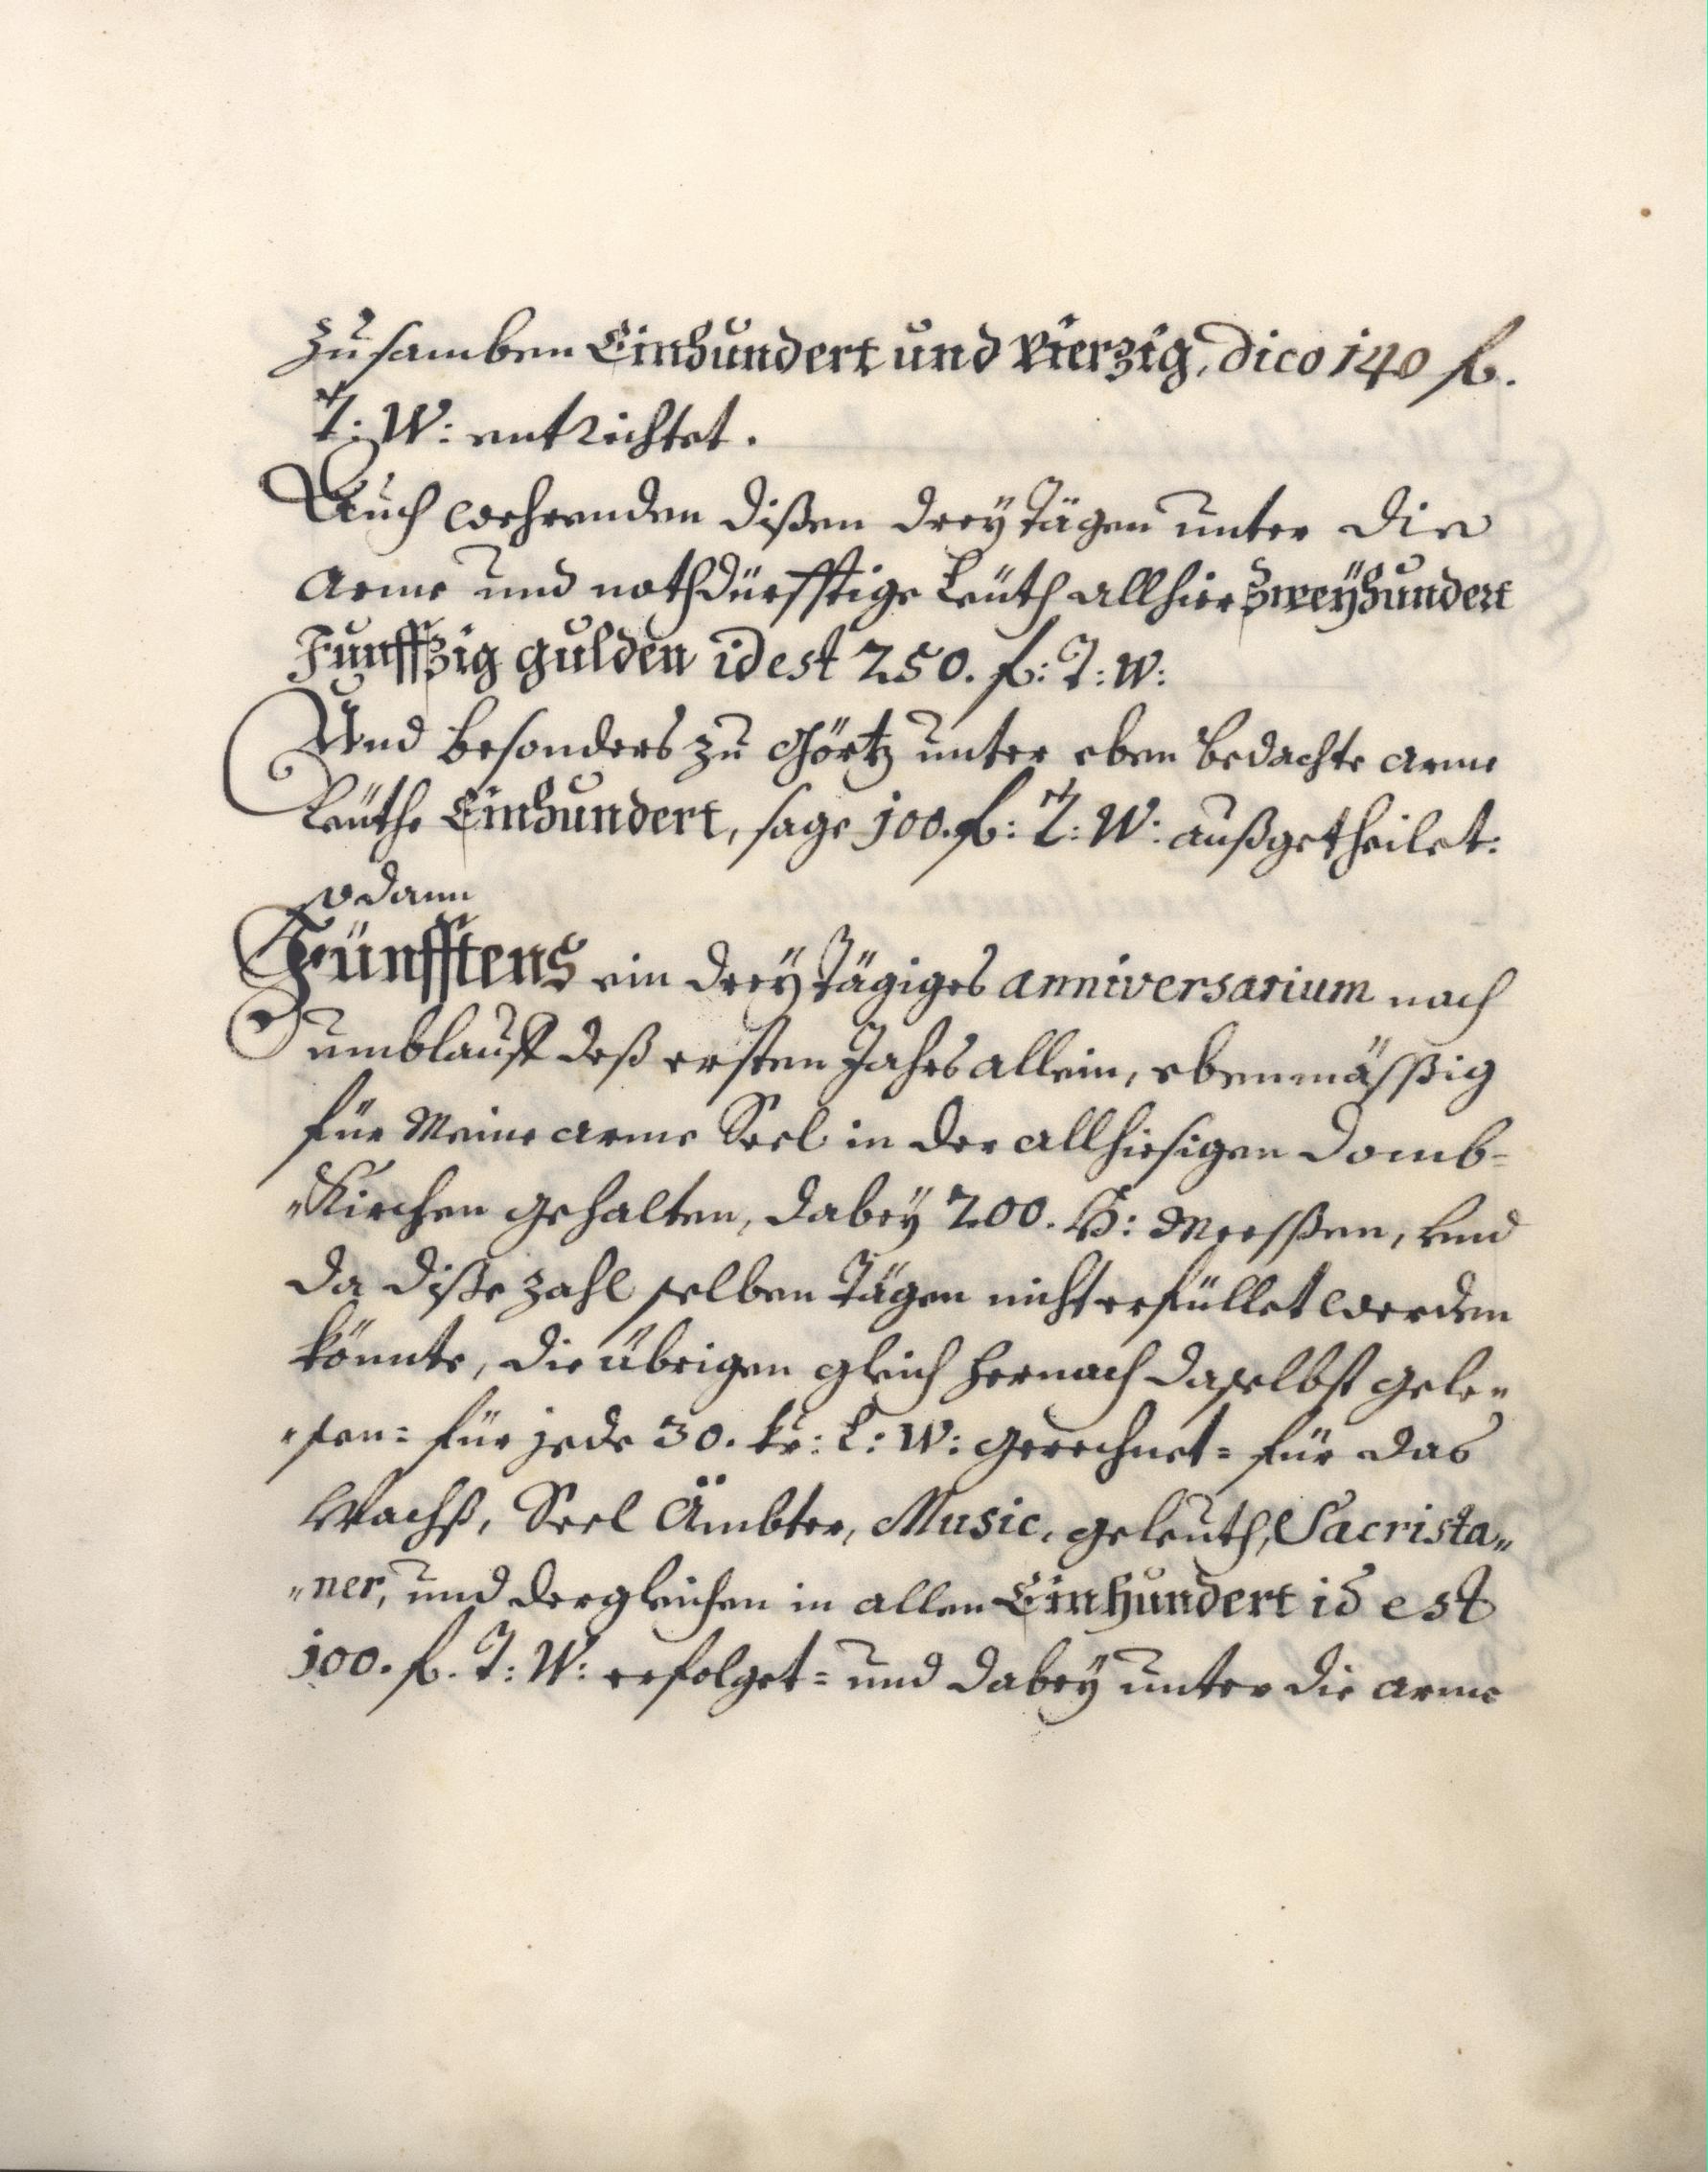 Zusamben Einhundert und Vierzig, dico 140 fl.
T: W: entrichtet.
Auch wehrenden dißen drey Tägen unter die
arme und nothdürfftige Leüth allhier Zweyhundert
Funffzig gulden id est 250. fl: T: W:
Und besonders zu Görtz unter eben bedachte arme
Leüthe Einhundert, sage 100. fl: T: W: außgetheilet:
sodann
Fünfftens ein dreytägiges anniversarium nach
umblauff deß ersten Jahrs allein, ebenmässig
für Meine arme Seel in der allhiesigen Domb=
"Kirchen gehalten, dabey 200. H: Meessen, und
da diße zahl selben Tägen nicht erfüllet werden
könnte, die übrigen gleich hernach daselbst gele"
"sen= für jede 30. kr: L: W: gerechnet= für das
Wachß, Seel Ämbter, Music, geleuth, Sacrista"
"ner, und dergleichen in allen Einhundert id est
100. fl. T: W: erfolget= und dabey unter die arme